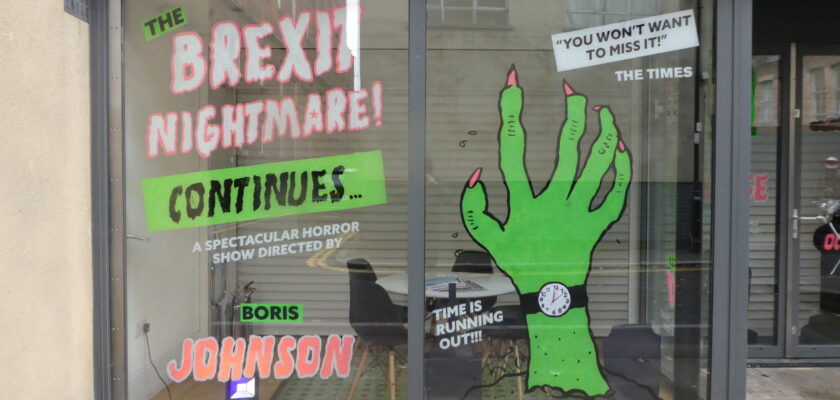 THE
BREXIT
NIGHTMARE!
CONTINUES...
A SPECTACULAR HORROR
SHOW DIRECTED BY
BORIS
JOHNSON
"YOU WON'T WANT
TO MISS IT!"
THE TIMES
TIME IS
RUNNING
OUT!!!